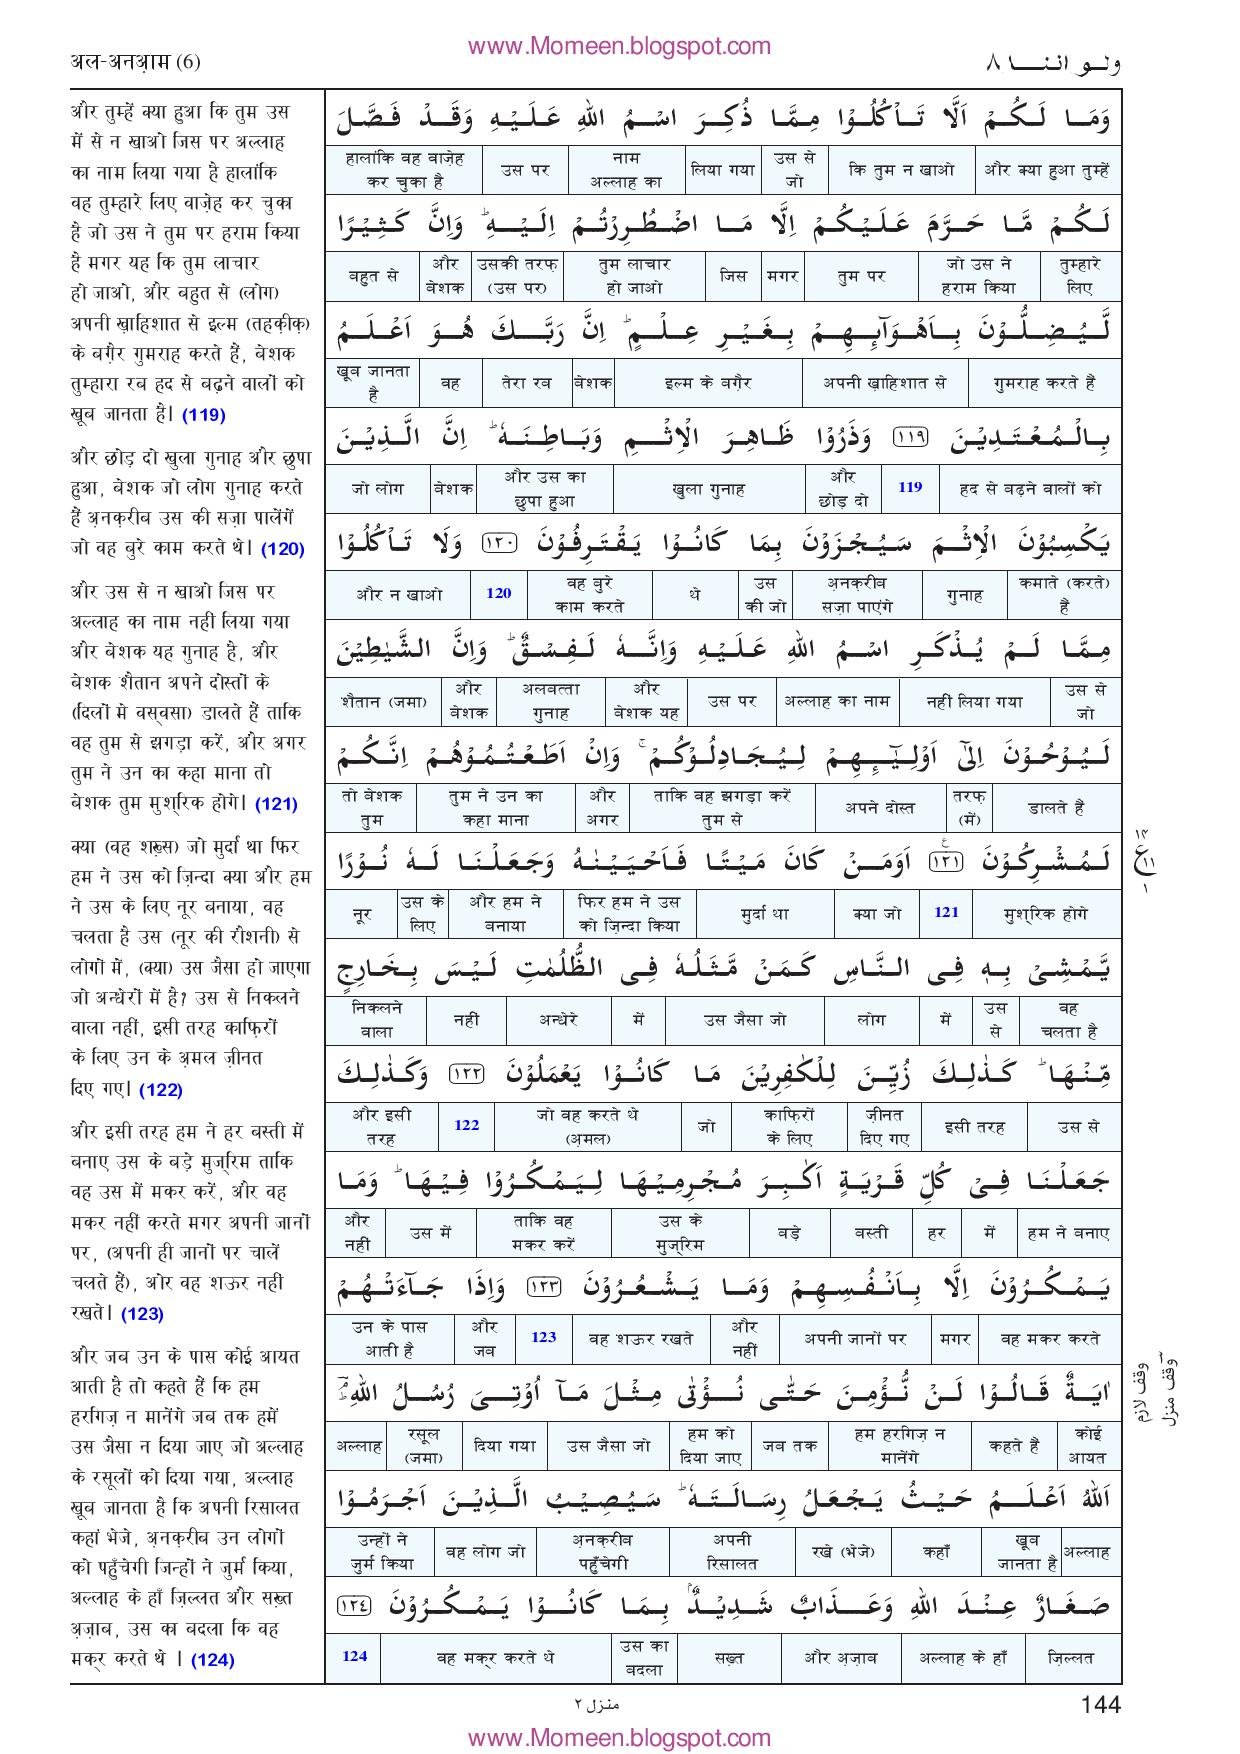 www.Momeen.blogspot.com
अल-अनआ़म (6)
ولو اننا ٨
और तुम्हें क्या हुआ कि तुम उस
में से न खाओ जिस पर अल्लाह
का नाम लिया गया है हालांकि
वह तुम्हारे लिए वाज़ेह कर चुका
है जो उस ने तुम पर हराम किया
है मगर यह कि तुम लाचार
हो जाओ, और बहुत से (लोग)
अपनी ख़ाहिशात से इल्म (तहक़ीक़)
के बग़ैर गुमराह करते हैं, बेशक
तुम्हारा रब हद से बढ़ने वालों को
खूब जानता है। (119)
और छोड़ दो खुला गुनाह और छुपा
हुआ, बेशक जो लोग गुनाह करते
हैं अ़नक़रीब उस की सज़ा पालेंगें
जो वह बुरे काम करते थे। (120)
और उस से न खाओ जिस पर
अल्लाह का नाम नही लिया गया
और बेशक यह गुनाह है, और
बेशक शैतान अपने दोस्तों के
(दिलों मे वस्वसा) डालते हैं ताकि
वह तुम से झगड़ा करें, और अगर
तुम ने उन का कहा माना तो
बेशक तुम मुश्रिक होगे। (121)
क्या (वह शख़्स) जो मुर्दा था फिर
हम ने उस को ज़िन्दा क्या और हम
ने उस के लिए नूर बनाया, वह
चलता है उस (नूर की रौशनी) से
लोगों में, (क्या) उस जैसा हो जाएगा
जो अन्धेरों में है? उस से निकलने
वाला नहीं, इसी तरह काफ़िरों
के लिए उन के अ़मल ज़ीनत
दिए गए। (122)
और इसी तरह हम ने हर बस्ती में
बनाए उस के बड़े मुज्रिम ताकि
वह उस में मकर करें, और वह
मकर नहीं करते मगर अपनी जानों
पर, (अपनी ही जानों पर चालें
चलते हैं), ओर वह शऊर नही
रखते। (123)
और जब उन के पास कोई आयत
आती है तो कहते हैं कि हम
हरगिज़ न मानेंगे जब तक हमें
उस जैसा न दिया जाए जो अल्लाह
के रसूलों को दिया गया, अल्लाह
खूब जानता है कि अपनी रिसालत
कहां भेजे, अ़नक़रीब उन लोगों
को पहुँचेगी जिन्हों ने जुर्म किया,
अल्लाह के हाँ ज़िल्लत और सख़्त
अ़ज़ाब, उस का बदला कि वह
मक्र करते थे । (124)
وَمَا لَكُمْ اَلَّا تَاْكُلُوْا مِمَّا ذُكِرَ اسْمُ اللّٰهِ عَلَيْهِ وَقَدْ فَصَّلَ
और क्या हुआ तुम्हें कि तुम न खाओ उस से जो लिया गया नाम अल्लाह का उस पर हालांकि वह वाज़ेह कर चुका है
لَكُمْ مَّا حَرَّمَ عَلَيْكُمْ اِلَّا مَا اضْطُرِرْتُمْ اِلَيْهِ ؕ وَاِنَّ كَثِيْرًا
तुम्हारे लिए जो उस ने हराम किया तुम पर मगर जिस तुम लाचार हो जाओ उसकी तरफ़ (उस पर) और बेशक बहुत से
لَّيُضِلُّوْنَ بِاَهْوَآىِٕهِمْ بِغَيْرِ عِلْمٍ ؕ اِنَّ رَبَّكَ هُوَ اَعْلَمُ
गुमराह करते हैं अपनी ख़ाहिशात से इल्म के बग़ैर बेशक तेरा रब वह खूब जानता है
بِالْمُعْتَدِيْنَ ١١٩ وَذَرُوْا ظَاهِرَ الْاِثْمِ وَبَاطِنَهٗ ؕ اِنَّ الَّذِيْنَ
हद से बढ़ने वालों को 119 और छोड़ दो खुला गुनाह और उस का छुपा हुआ बेशक जो लोग
يَكْسِبُوْنَ الْاِثْمَ سَيُجْزَوْنَ بِمَا كَانُوْا يَقْتَرِفُوْنَ ١٢٠ وَلَا تَاْكُلُوْا
कमाते (करते) हैं गुनाह अ़नक़रीब सज़ा पाएंगे उस की जो थे वह बुरे काम करते 120 और न खाओ
مِمَّا لَمْ يُذْكَرِ اسْمُ اللّٰهِ عَلَيْهِ وَاِنَّهٗ لَفِسْقٌ ؕ وَاِنَّ الشَّيٰطِيْنَ
उस से जो नहीं लिया गया अल्लाह का नाम उस पर और बेशक यह अलबत्ता गुनाह और बेशक शैतान (जमा)
لَيُوْحُوْنَ اِلٰٓى اَوْلِيٰٓىِٕهِمْ لِيُجَادِلُوْكُمْ ۚ وَاِنْ اَطَعْتُمُوْهُمْ اِنَّكُمْ
डालते हैं तरफ़ (में) अपने दोस्त ताकि वह झगड़ा करें तुम से और अगर तुम ने उन का कहा माना तो बेशक तुम
لَمُشْرِكُوْنَ ١٢١ اَوَمَنْ كَانَ مَيْتًا فَاَحْيَيْنٰهُ وَجَعَلْنَا لَهٗ نُوْرًا
मुश्रिक होगे 121 क्या जो मुर्दा था फिर हम ने उस को ज़िन्दा किया और हम ने बनाया उस के लिए नूर
يَّمْشِيْ بِهٖ فِي النَّاسِ كَمَنْ مَّثَلُهٗ فِي الظُّلُمٰتِ لَيْسَ بِخَارِجٍ
वह चलता है उस से में लोग उस जैसा जो में अन्धेरे नहीं निकलने वाला
مِّنْهَا ؕ كَذٰلِكَ زُيِّنَ لِلْكٰفِرِيْنَ مَا كَانُوْا يَعْمَلُوْنَ ١٢٢ وَكَذٰلِكَ
उस से इसी तरह ज़ीनत दिए गए काफ़िरों के लिए जो जो वह करते थे (अ़मल) 122 और इसी तरह
جَعَلْنَا فِيْ كُلِّ قَرْيَةٍ اَكٰبِرَ مُجْرِمِيْهَا لِيَمْكُرُوْا فِيْهَا ؕ وَمَا
हम ने बनाए में हर बस्ती बड़े उस के मुज्रिम ताकि वह मकर करें उस में और नहीं
يَمْكُرُوْنَ اِلَّا بِاَنْفُسِهِمْ وَمَا يَشْعُرُوْنَ ١٢٣ وَاِذَا جَآءَتْهُمْ
वह मकर करते मगर अपनी जानों पर और नहीं वह शऊर रखते 123 और जब उन के पास आती है
اٰيَةٌ قَالُوْا لَنْ نُّؤْمِنَ حَتّٰى نُؤْتٰى مِثْلَ مَآ اُوْتِيَ رُسُلُ اللّٰهِ ؕ
कोई आयत कहते हैं हम हरगिज़ न मानेंगे जब तक हम को दिया जाए उस जैसा जो दिया गया रसूल (जमा) अल्लाह
اَللّٰهُ اَعْلَمُ حَيْثُ يَجْعَلُ رِسَالَتَهٗ ؕ سَيُصِيْبُ الَّذِيْنَ اَجْرَمُوْا
अल्लाह खूब जानता है कहाँ रखे (भेजे) अपनी रिसालत अ़नक़रीब पहुँचेगी वह लोग जो उन्हों ने जुर्म किया
صَغَارٌ عِنْدَ اللّٰهِ وَعَذَابٌ شَدِيْدٌۢ بِمَا كَانُوْا يَمْكُرُوْنَ ١٢٤
ज़िल्लत अल्लाह के हाँ और अ़ज़ाब सख़्त उस का बदला वह मक्र करते थे 124
١٤
ع ١١
١
وقف لازم
وقف منزل
منزل ٢
144
www.Momeen.blogspot.com